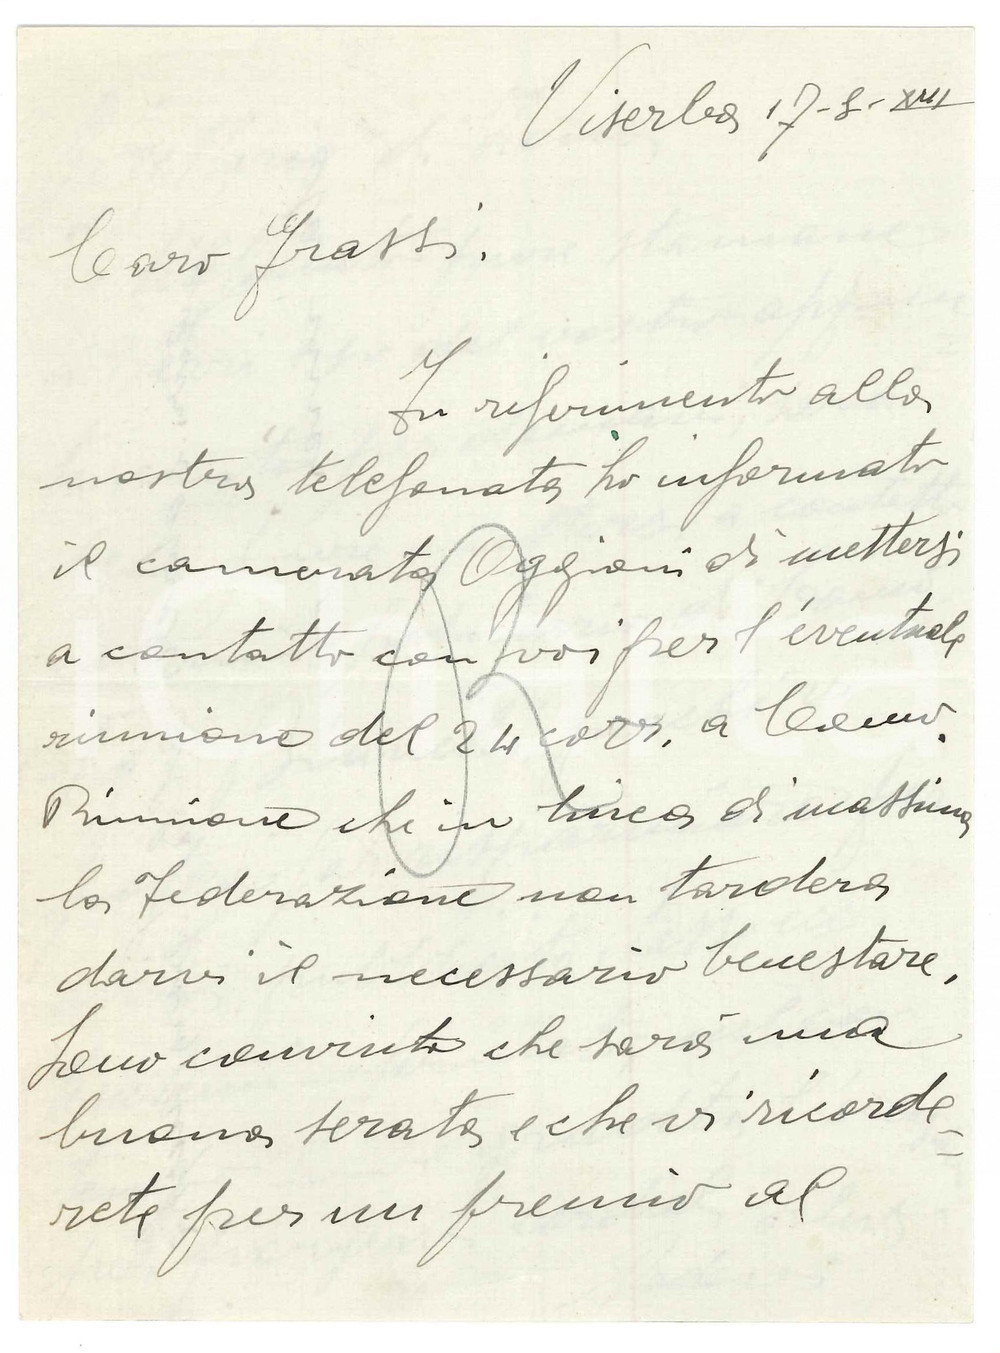 Viserba 17-8-XIII
Caro Grassi.
In riferimento alla
nostra telefonata ho informato
il camerata Oggioni di mettersi
a contatto con voi per l'eventuale
riunione del 24 corr. a Como.
Riunione che in linea di massima
la Federazione non tarderà
darvi il necessario benestare.
Sono convinto che sarà una
buona serata e che vi ricorde=
rete per un premio al